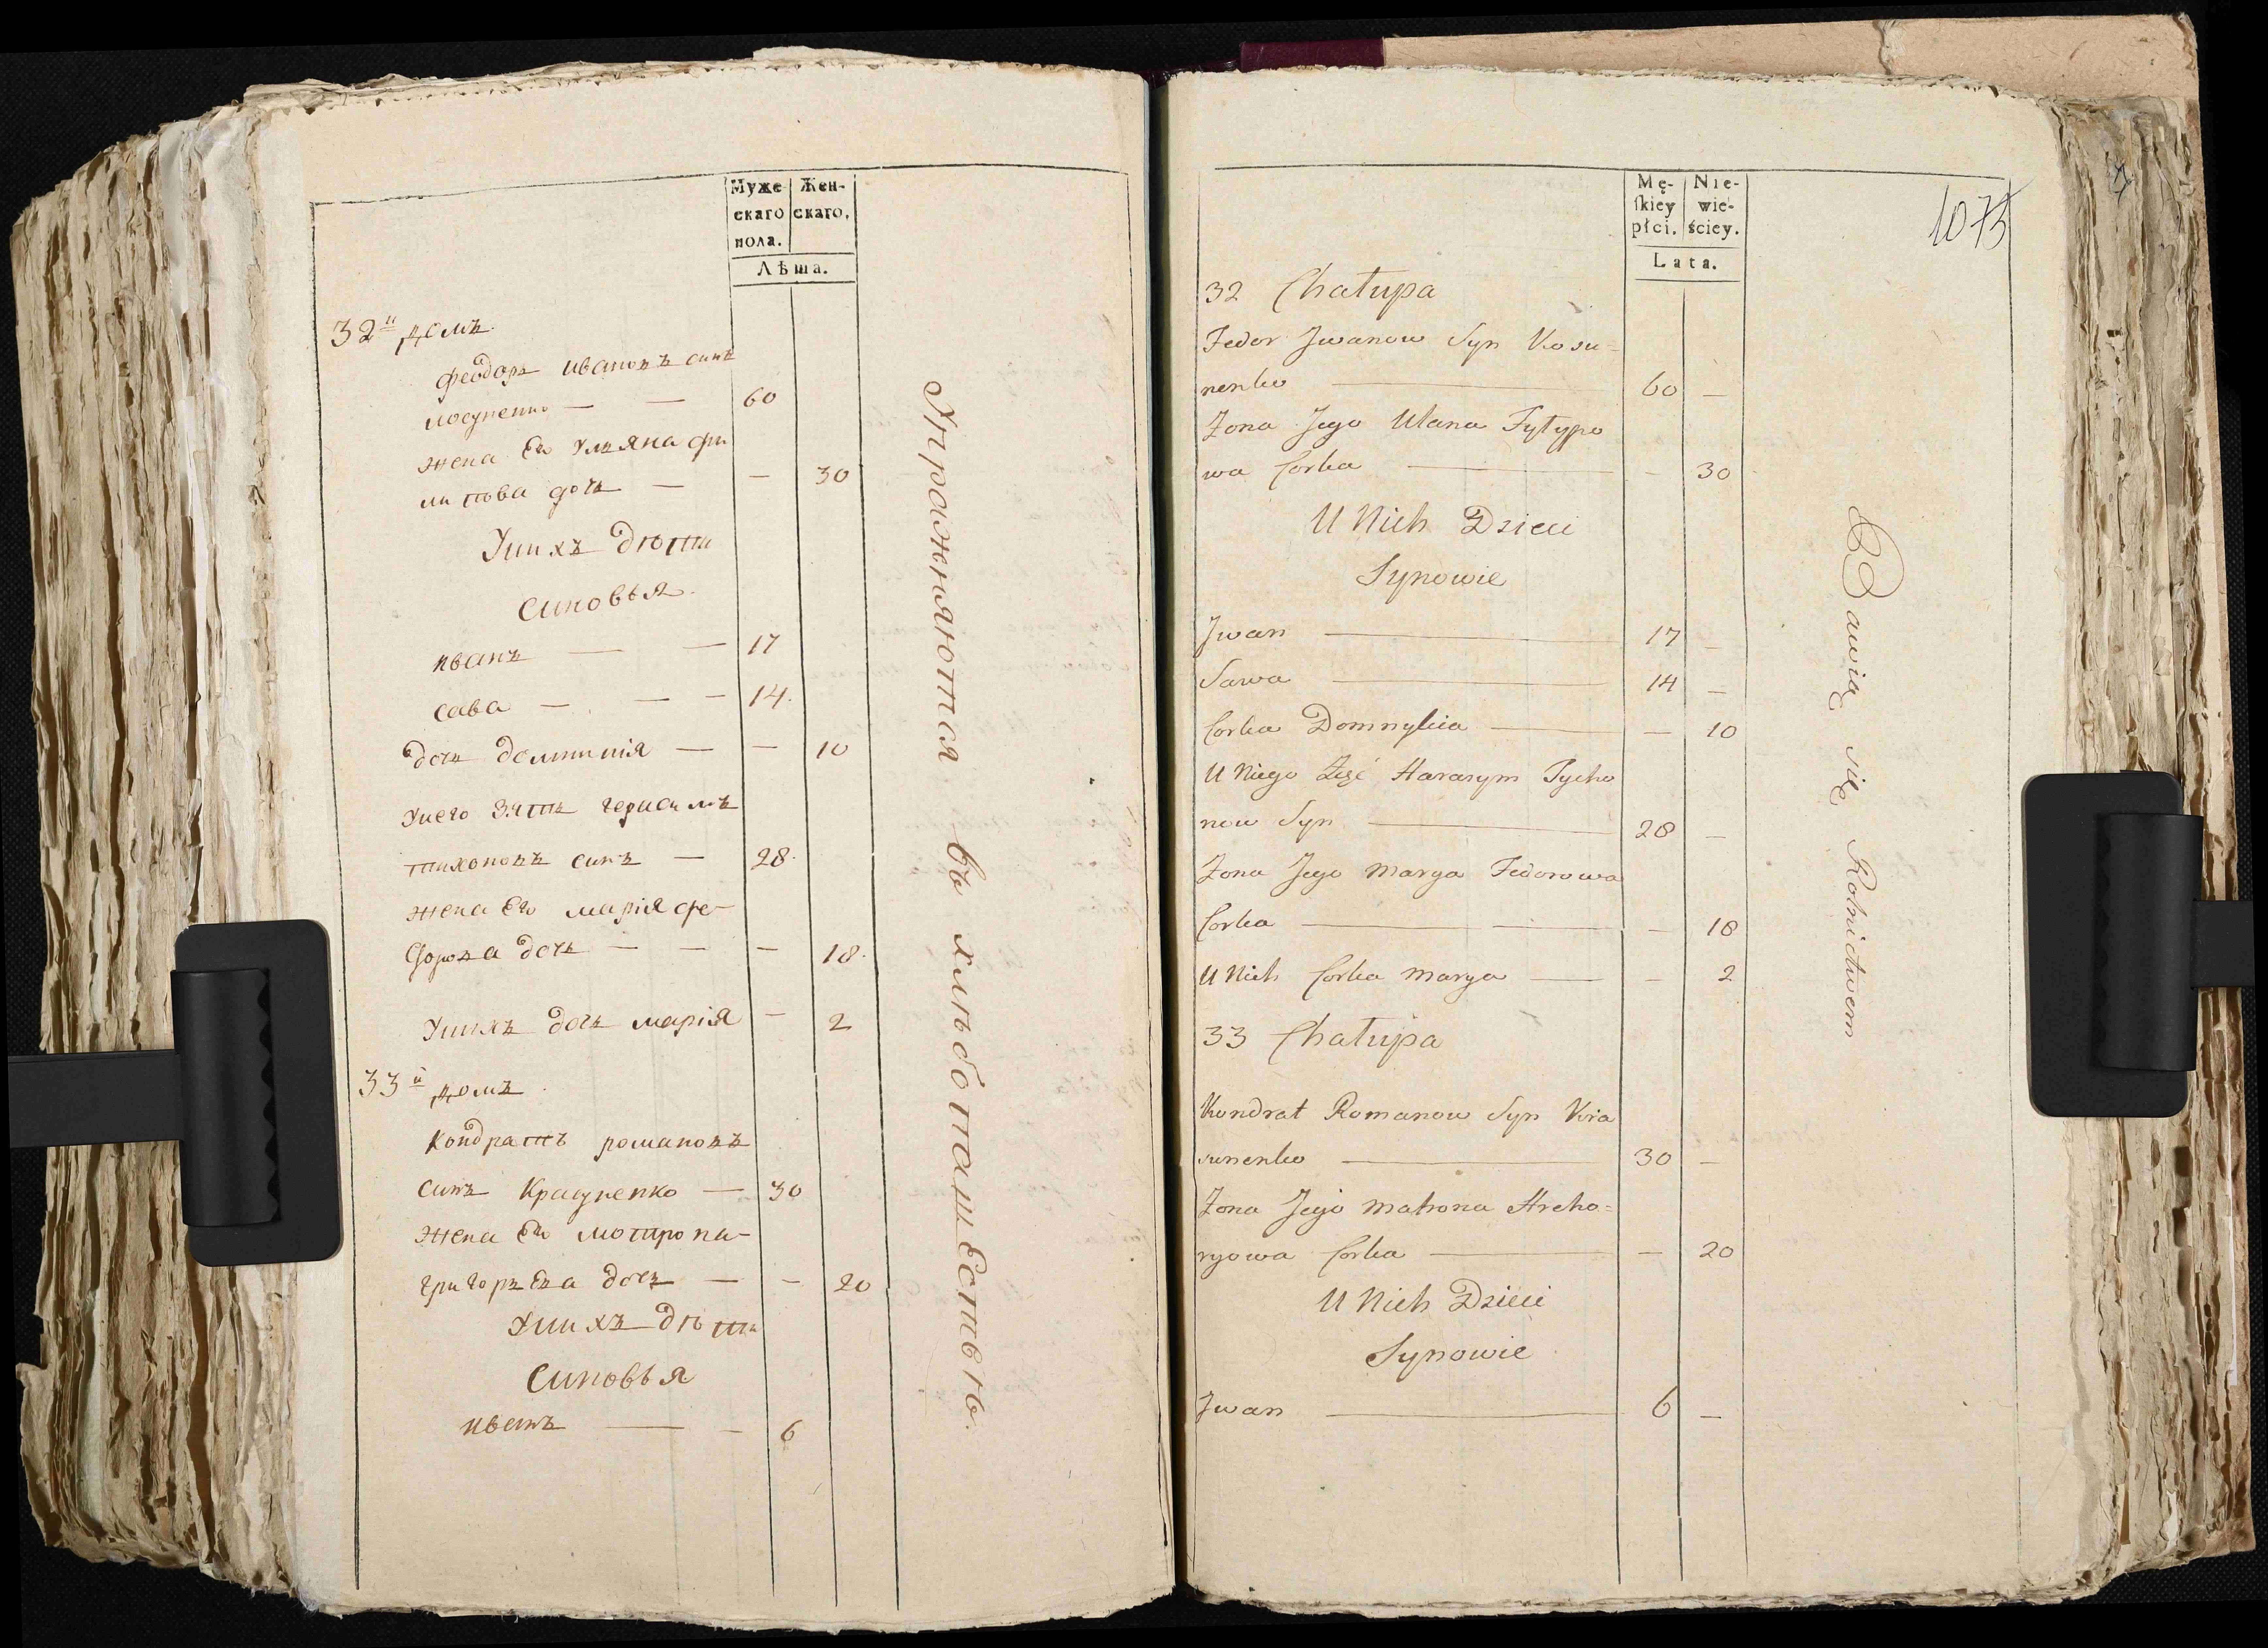 Муже- Жен-
скаго скаго.
пола.
Лѣта.
32й домъ
феодоръ Ивановъ синъ
косуненко — — 60
жена Его Уляна фи
липова дочь — — 30
Унихъ дѣти
Синовья
иванъ — — 17
сава — — — 14.
дочь домникія — — 10
Унего зять герасимъ
тихоновъ синъ — 28.
жена Его марія фе-
дорова дочь — — — 18.
Унихъ дочь марія — 2
33й домъ
Кондратъ романовъ
синъ Красуненко — 30
жена Его мотрона
григорьева дочь — — 20
Унихъ дѣти
Синовья
иванъ — — 6
Упражняются въ хлѣбопашествѣ.
Mę- Nie-
skiey wie-
płci. ściey.
Lata.
1075
32 Chałupa
Fedor Jwanow Syn Kosu=
nenko — 60 —
Zona Jego Ulana Fyłypo
wa Corka — — 30
U Nich Dzieci
Synowie
Jwan — 17 —
Sawa — 14 —
Corka Domnykia — — 10
U Niego Zięć Harasym Tycho
now Syn — 28 —
Zona Jego Marya Fedorowa
Corka — — — 18
U Nich Corka Marya — — 2
33 Chałupa
Kondrat Romanow Syn Kra
sunenko — 30 —
Zona Jego Matrona Hreho=
ryowa Corka — — 20
U Nich Dzieci
Synowie
Jwan — 6 —
Bawią się Rolnictwem